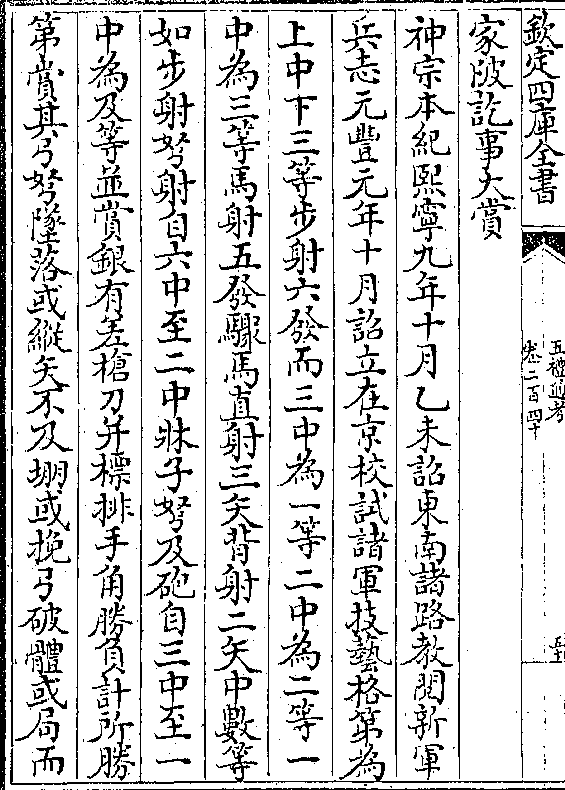 欽定四庫全書
五禮通考
卷二百四十
家陂訖事大賞
神宗本紀熙寧九年十月乙未詔東南諸路教閱新軍
兵志元豐元年十月詔立在京校試諸軍技藝格第為
上中下三等步射六發而三中為一等二中為二等一
中為三等馬射五發驟馬直射三矢背射二矢中數等
如步射弩射自六中至二中牀子弩及砲自三中至一
中為及等並賞銀有差槍刀并標排手角勝負計所勝
第賞其弓弩墜落或縱矢不及堋或挽弓破體或局而